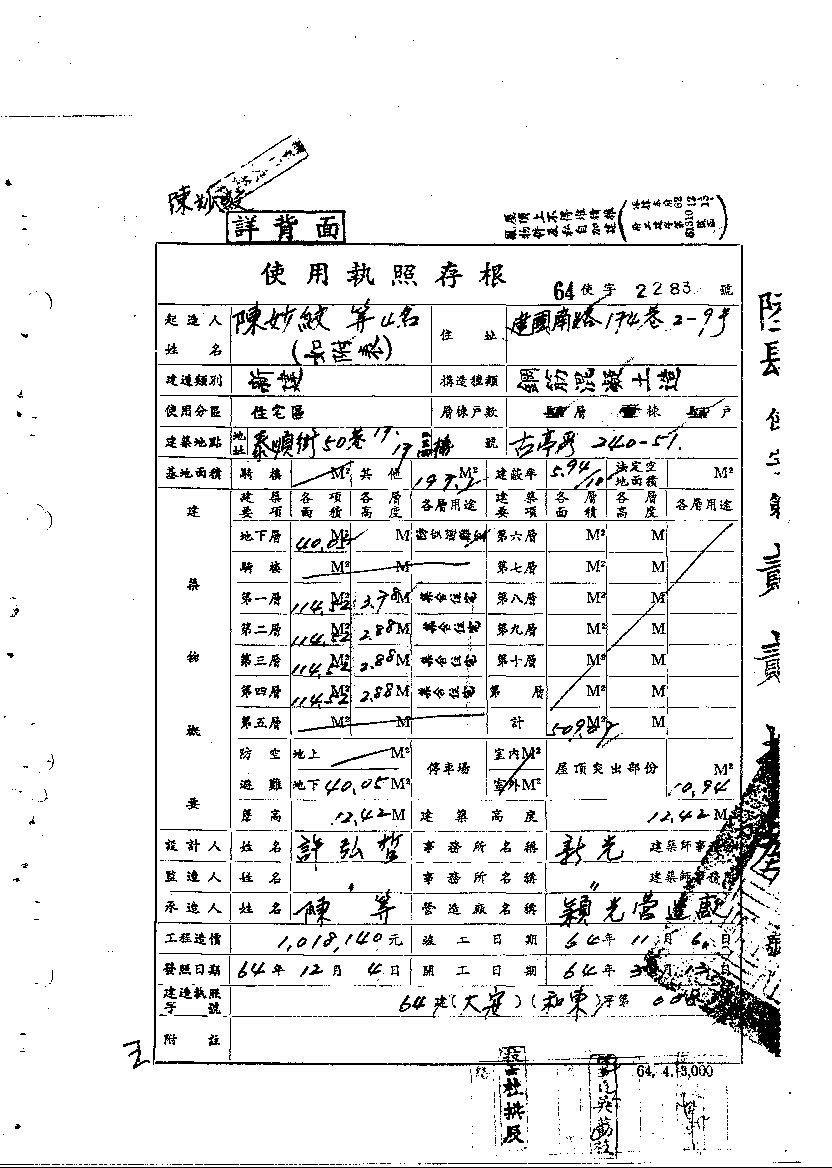 詳背面
屋頂上不得堆積雜
物件及私自加建
使用執照存根
64 使字 2283 號
起造人姓名 陳妙紋 等4名 住址 建國南路174巷2-9号
建造類別 構造種類 鋼筋混凝土造
使用分區 住宅區 層棟戶數 層 棟 戶
建築地點 地址 泰順街50巷17. 號 古亭段 240-51.
基地面積 騎樓 M² 其他 M² 建蔽率 5.94/10 法定空地面積 M²
建築物概要
建築要項 各項面積 各層高度 各層用途 建築要項 各層面積 各層高度 各層用途
地下層 40.05 M² M 第六層 M² M
騎樓 M² M 第七層 M² M
第一層 114.52 M² 3.78 M 集合住宅 第八層 M² M
第二層 114.52 M² 2.88 M 集合住宅 第九層 M² M
第三層 114.52 M² 2.88 M 集合住宅 第十層 M² M
第四層 114.52 M² 2.88 M 集合住宅 第 層 M² M
第五層 M² M 計 M² M
防空避難 地上 M² 停車場 室內 M² 屋頂突出部份 M²
地下 40.05 M² 室外 M² 10.94
簷高 12.42 M 建築高度 12.42 M
設計人 姓名 許弘哲 事務所名稱 新光 建築師事務
監造人 姓名 〃 事務所名稱 〃 建築師事務
承造人 姓名 陳 等 營造廠名稱 穎光營造廠
工程造價 1,018,140元 竣工日期 64年11月6日
發照日期 64年12月4日 開工日期 64年3月13日
建造執照字號 64建(大安)(和東)字第
附註
64. 4. 3,000